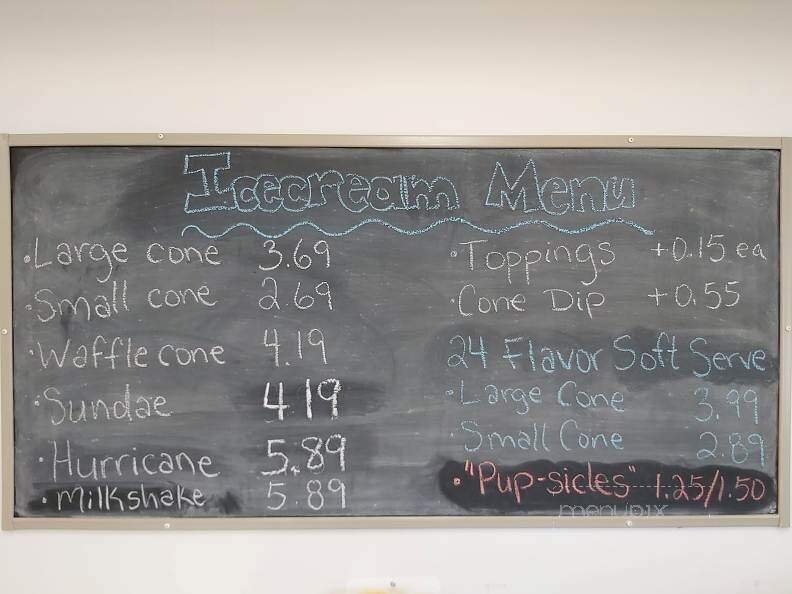 Icecream Menu
• Large cone 3.69
• Small cone 2.69
• Waffle cone 4.19
• Sundae 4.19
• Hurricane 5.89
• Milkshake 5.89
• Toppings +0.15 ea
• Cone Dip +0.55
24 Flavor Soft Serve
• Large Cone 3.99
• Small Cone 2.89
• "Pup-sicles" 1.25/1.50
menupix